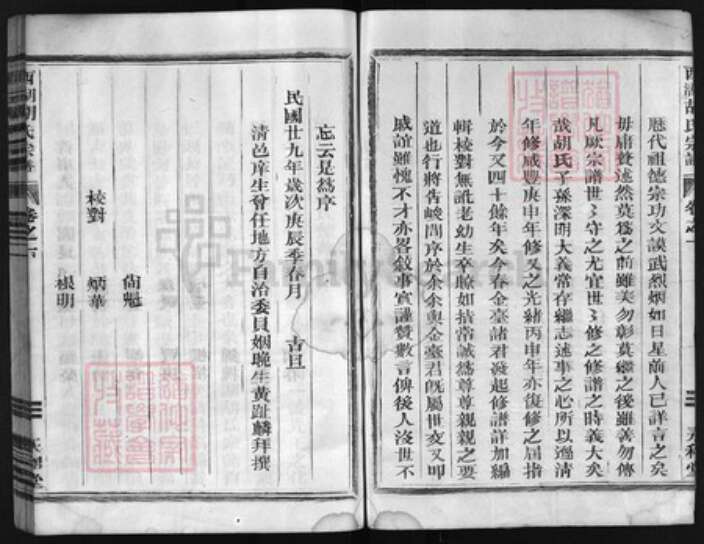 西湖胡氏宗譜
卷之一
歷代祖德宗功文謨武烈炳如日星前人已詳言之矣
毋庸贅述然莫為之前雖美勿彰莫繼之後雖善勿傳
凡厥宗譜世世守之尤宜世世修之修譜之時義大矣
哉胡氏子孫深明大義常存繼志述事之心所以遜清
年修咸豐庚申年修又之光緒丙申年亦復修之屈指
於今又四十餘年矣今春金臺諸君發起修譜詳加編
輯校對無訛老幼生卒瞭如指常誠為尊尊親親之要
道也行將告峻問序於余余與金臺君既屬世交又叩
戚誼雖愧不才亦畧敘事實謹贊數言俾後人沒世不
忘云是為序
民國廿九年歲次庚辰季春月 吉旦
清邑庠生曾任地方自治委員姻晚生黃趾麟拜撰
尚魁
校對 炳華
根明
西湖胡氏宗譜
卷之一